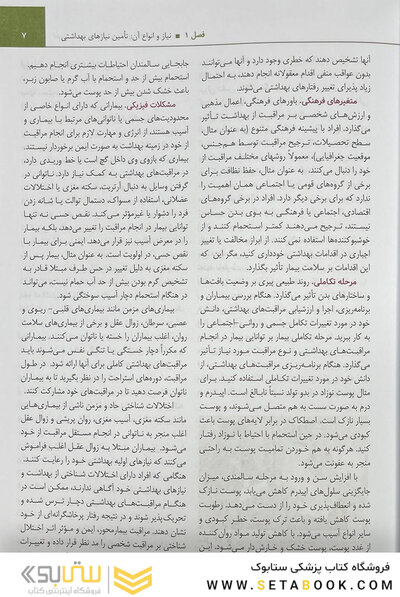 فصل ۱ • نیاز و انواع آن: تأمین نیازهای بهداشتی
۷
آنها تشخیص دهند که خطری وجود دارد و آنها می‌توانند
بدون عواقب منفی اقدام معقولانه انجام دهند، به احتمال
زیاد پذیرای تغییر رفتارهای بهداشتی می‌شوند.
متغیرهای فرهنگی. باورهای فرهنگی، اعمال مذهبی
و ارزش‌های شخصی بر مراقبت از بهداشت تأثیر
می‌گذارد. افراد با پیشینه فرهنگی متنوع (به عنوان مثال،
سطح تحصیلات، ترجیح مراقبت توسط هم‌جنس،
موقعیت جغرافیایی)، معمولاً روش‌های مختلف مراقبت از
خود را دنبال می‌کنند. به عنوان مثال، حفظ نظافت برای
برخی از گروه‌های قومی یا اجتماعی همان اهمیت را
ندارد که برای برخی دیگر دارد. افراد در برخی گروه‌های
اقتصادی، اجتماعی یا فرهنگی به بوی بدن حساس
نیستند، ترجیح می‌دهند کمتر استحمام کنند و از
خوشبوکننده‌ها استفاده نمی‌کنند. از ابراز مخالفت یا تغییر
اجباری در اقدامات بهداشتی خودداری کنید، مگر این که
این اقدامات بر سلامت بیمار تأثیر بگذارد.
مرحله تکاملی. روند طبیعی پیری بر وضعیت بافت‌ها
و ساختارهای بدن تأثیر می‌گذارد. هنگام بررسی بیماران و
برنامه‌ریزی، اجرا و ارزشیابی مراقبت‌های بهداشتی، دانش
خود در مورد تغییرات تکامل جسمی و روانی-اجتماعی را
به کار ببرید. مرحله تکاملی بیمار بر توانایی بیمار در انجام
مراقبت‌های بهداشتی و نوع مراقبت مورد نیاز تأثیر
می‌گذارد. هنگام برنامه‌ریزی مراقبت‌های بهداشتی، از
دانش خود در مورد تغییرات تکاملی استفاده کنید. برای
مثال پوست نوزاد در بدو تولد نسبتاً نابالغ است. اپیدرم و
درم به صورت سست به هم متصل می‌شوند، و پوست
بسیار نازک است. اصطکاک در برابر لایه‌های پوست باعث
کبودی می‌شود. در حین استحمام با احتیاط با نوزاد رفتار
کنید. هرگونه به هم خوردن تمامیت پوست به راحتی
منجر به عفونت می‌شود.
با افزایش سن و ورود به مرحله سالمندی، میزان
جایگزینی سلول‌های اپیدرم کاهش می‌یابد، پوست نازک
شده و انعطاف‌پذیری خود را از دست می‌دهد. رطوبت
پوست کاهش یافته و باعث ترک پوست، خطر کبودی و
سایر انواع آسیب می‌شود. با کاهش تولید مواد روان کننده
از غدد پوست، پوست خشک و خارش‌دار می‌شود. این
جابجایی سالمندان احتیاطات بیشتری انجام دهیم.
استحمام بیش از حد و استحمام با آب گرم یا صابون زبر،
باعث خشک شدن بیش از حد پوست می‌شود.
مشکلات فیزیکی. بیمارانی که دارای انواع خاصی از
محدودیت‌های جسمی یا ناتوانی‌های مرتبط با بیماری و
آسیب هستند، از انرژی و مهارت لازم برای انجام مراقبت
از خود در زمینه بهداشت به صورت ایمن برخوردار نیستند.
بیماری که بازوی وی داخل گچ است یا خط وریدی دارد،
در مراقبت‌های بهداشتی به کمک نیاز دارد. ناتوانی در
گرفتن وسایل به دنبال آرتریت، سکته مغزی یا اختلالات
عضلانی، استفاده از مسواک، دستمال توالت یا شانه زدن
فرد را دشوار یا غیرمؤثر می‌کند. نقص حسی نه تنها
توانایی بیمار در انجام مراقبت را تغییر می‌دهد، بلکه بیمار
را در معرض آسیب نیز قرار می‌دهد. ایمنی برای بیمار با
نقص حسی، در اولویت است. به عنوان مثال، بیمار پس از
سکته مغزی به دلیل تغییر در حس طرف مبتلا قادر به
تشخیص گرم بودن بیش از حد آب حمام نیست، می‌تواند
در هنگام استحمام دچار آسیب سوختگی شود.
بیماری‌های مزمن مانند بیماری‌های قلبی-ریوی و
عصبی، سرطان، زوال عقل و برخی از بیماری‌های سلامت
روان، اغلب بیماران را خسته یا ناتوان می‌کنند. بیمارانی
که مکرراً دچار خستگی یا تنگی نفس می‌شوند باید
مراقبت‌های بهداشتی کاملی برای آنها ارائه شود. در طول
مراقبت، دوره‌های استراحت را در نظر بگیرید تا به بیماران
ناتوان فرصت دهید تا در مراقبت‌های خود مشارکت کنند.
اختلالات شناختی حاد و مزمن ناشی از بیماری‌هایی
مانند سکته مغزی، آسیب مغزی، روان پریشی و زوال عقل
اغلب منجر به ناتوانی در انجام مستقل مراقبت از خود
می‌شوند. بیماران مبتلا به زوال عقل اغلب فراموش
می‌کنند که نیازهای اولیه بهداشتی خود را برآورده کنند.
هنگامی که افراد دارای اختلالات شناختی از بهداشت و
نیازهای بهداشتی خود آگاهی ندارند، ممکن است در
هنگام مراقبت‌های بهداشتی دچار ترس شده و
تحریک‌پذیر شوند و در نتیجه رفتار پرخاشگرانه‌ای از خود
نشان دهند. مراقبت بیمارمحور، ایمن و مؤثر اثر اختلال
شناختی بر مراقبت شخصی را مد نظر قرار داده و تغییرات
ستابوک
فروشگاه اینترنتی کتاب
فروشگاه کتاب پزشکی ستابوک
WWW.SETABOOK.COM